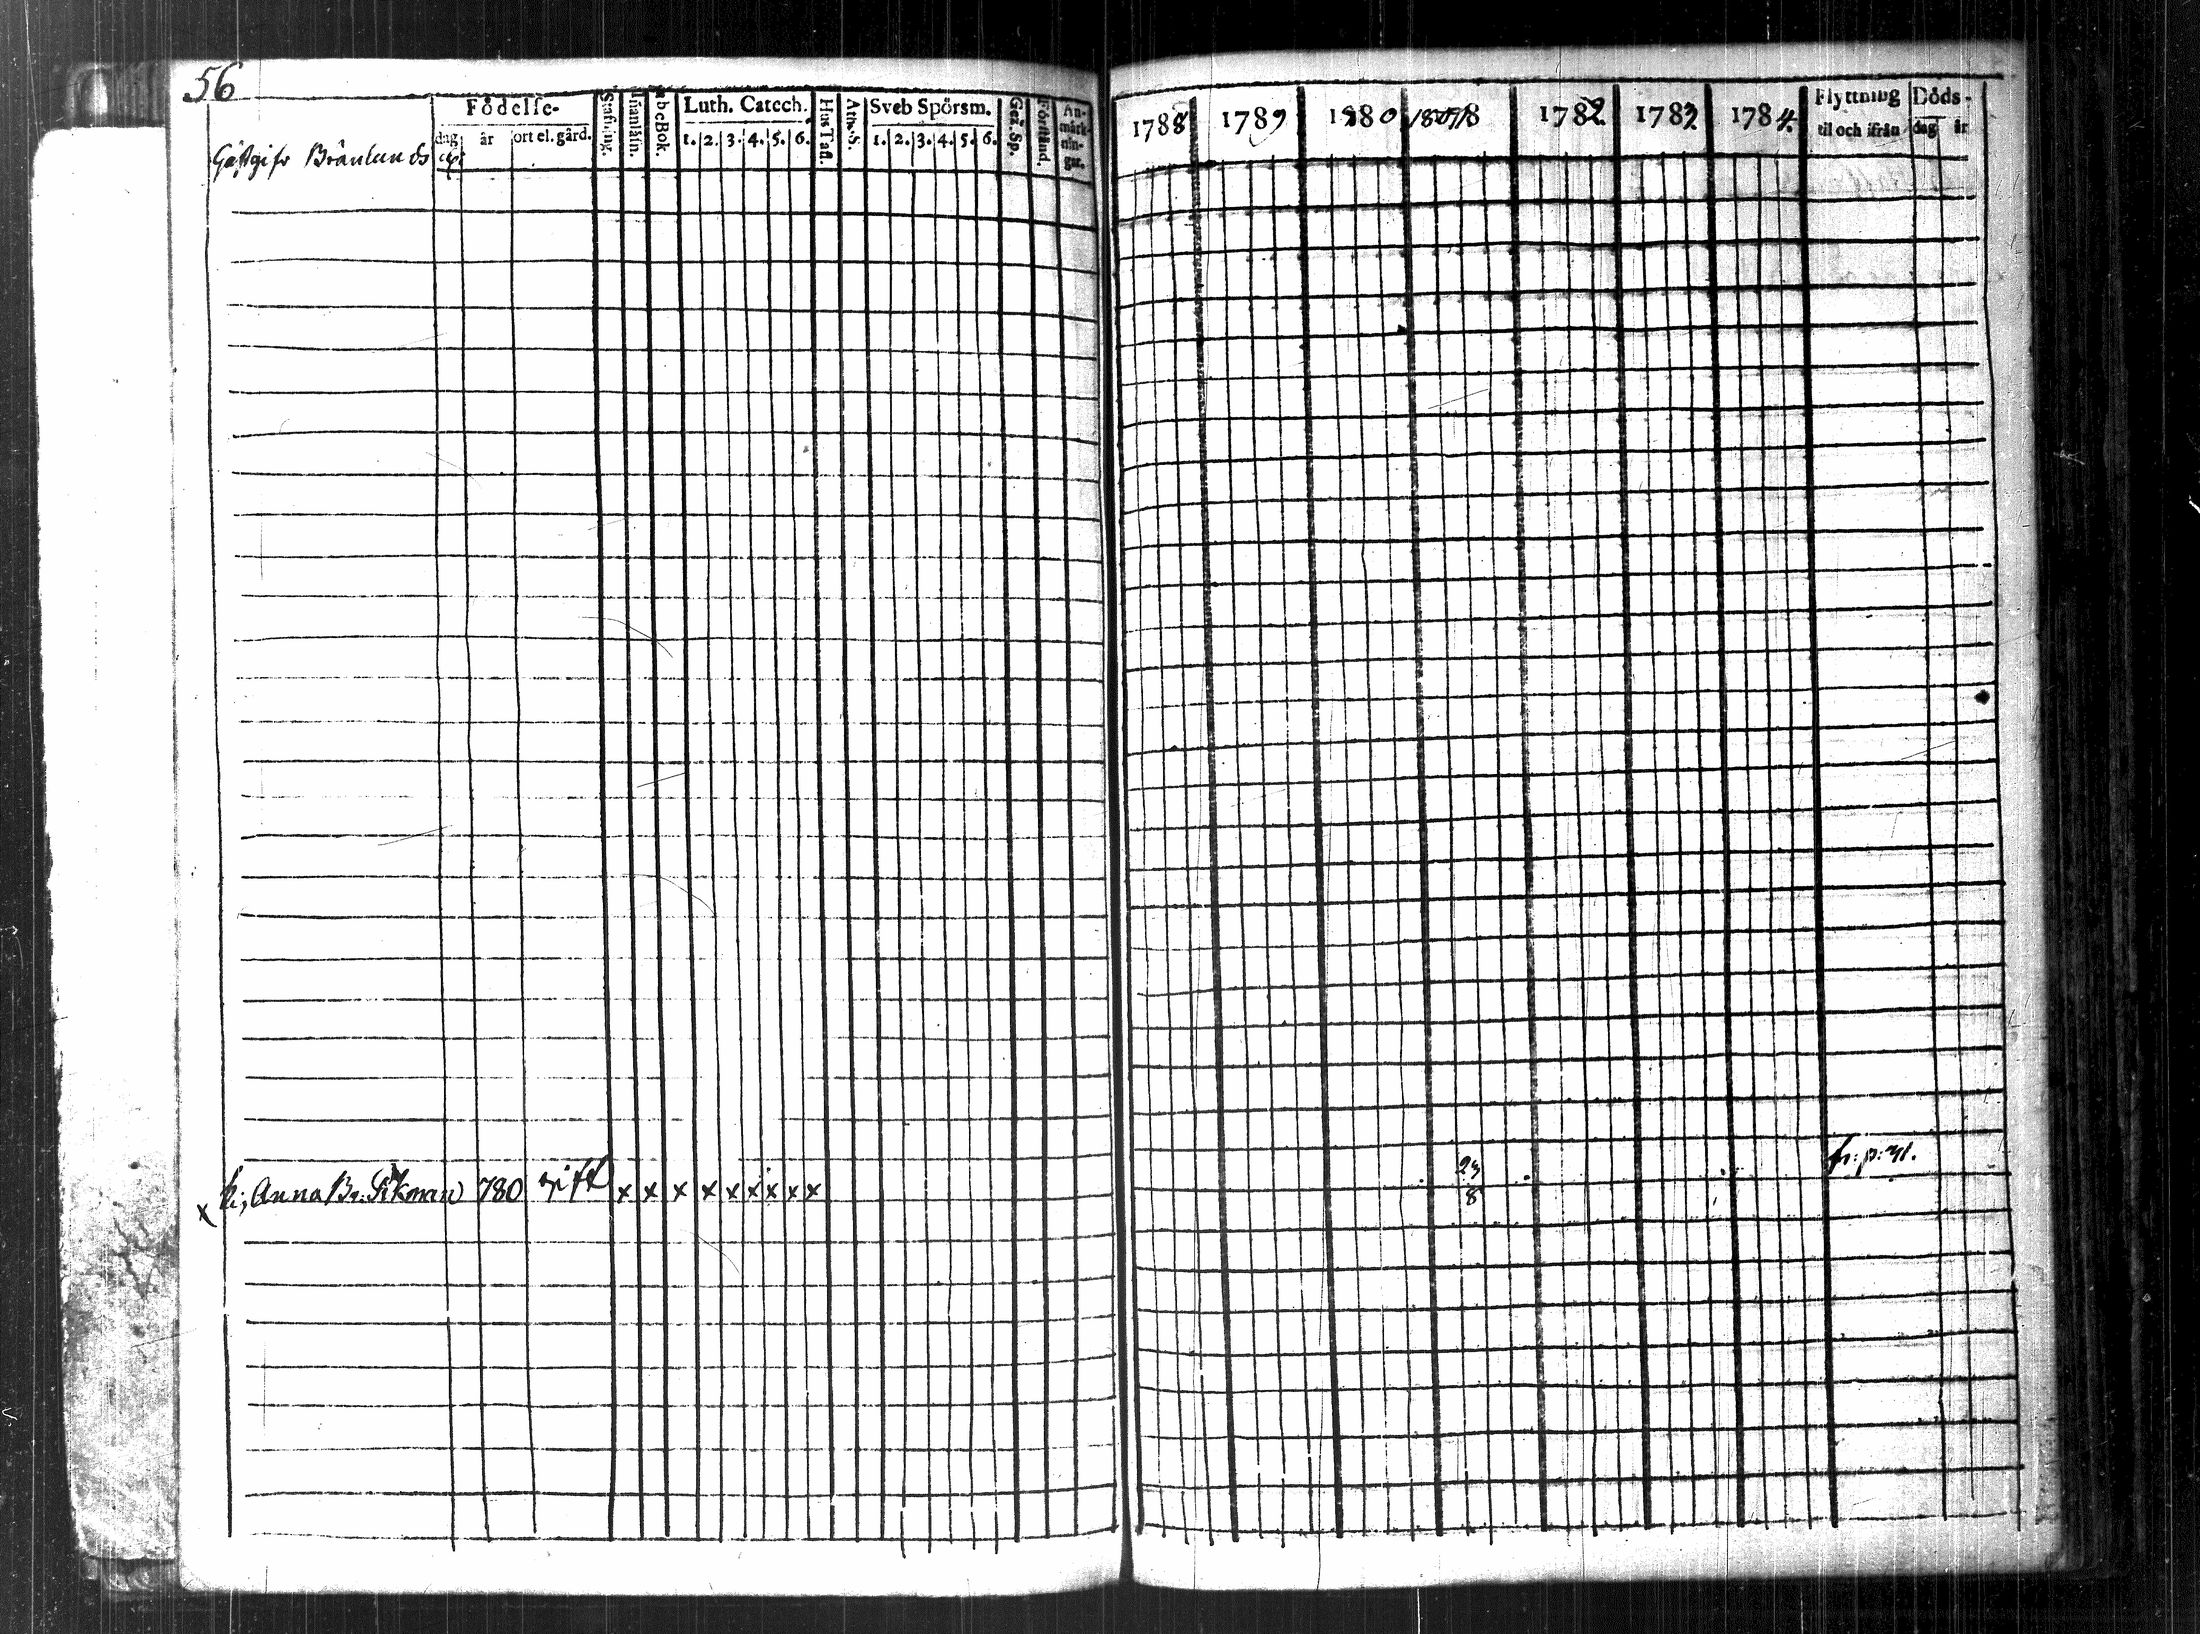 56
Födelse- Stafning. Innanläsn. Abc Bok. Luth. Catech. Hus Tafl. Ath. S. Sveb Spörsm. Gez. Sp. Förstånd. An-märk-nin-gar.
dag år ort el. gård. 1. 2. 3. 4. 5. 6. 1. 2. 3. 4. 5. 6.
1788 1789 1780 1782 1783 1784 Flyttning til och ifrån Döds- dag år
Gästgifv Bränlunds
x h; Anna Br: 780 gift x x x x x x x x x 23 8 fr: p: 41.